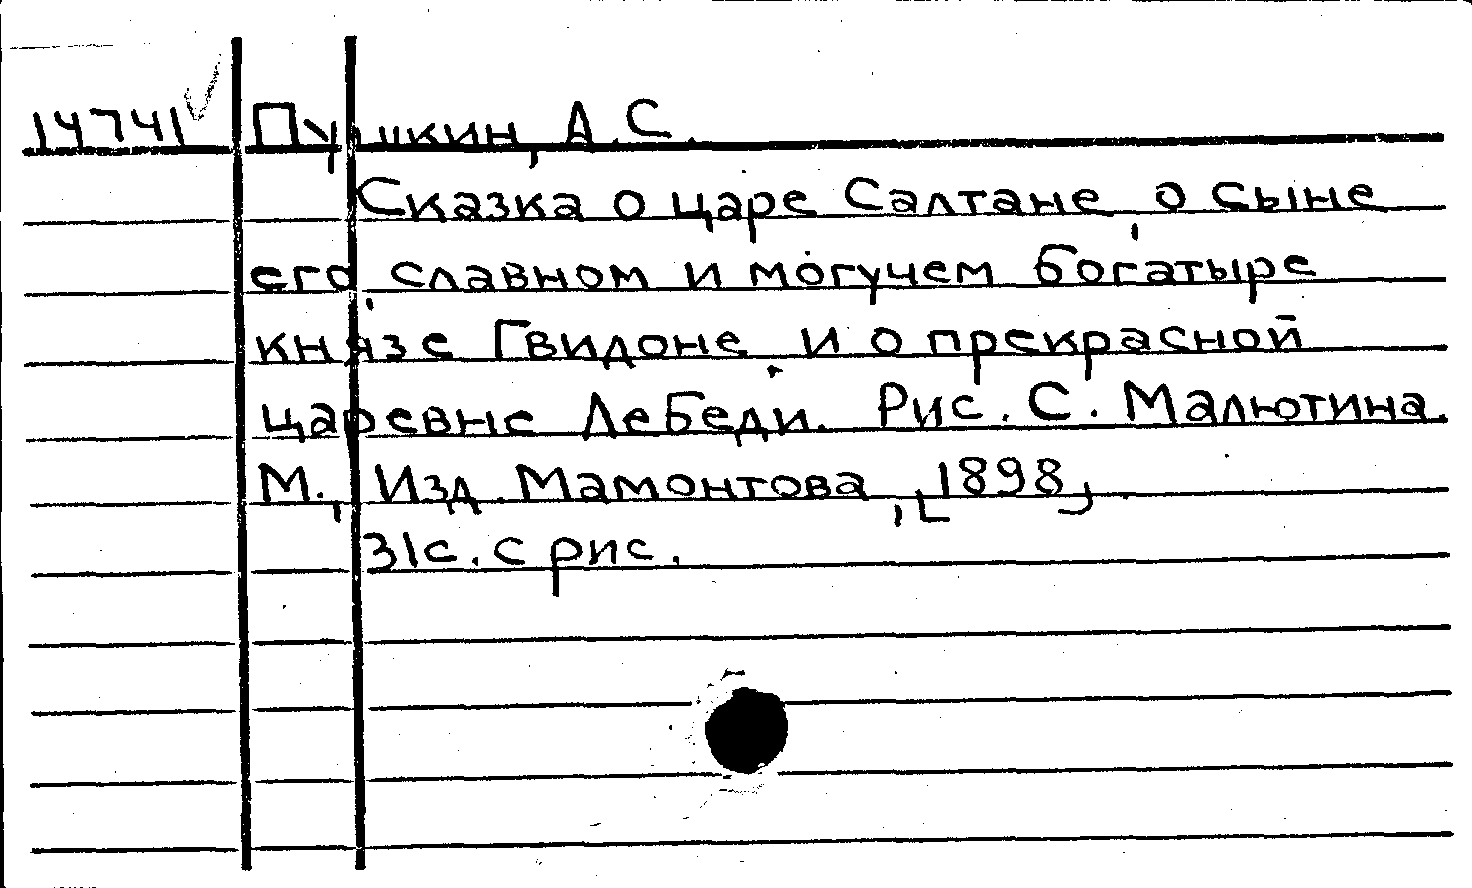 14741 Пушкин, А.С.
Сказка о царе Салтане, о сыне
его, славном и могучем богатыре
князе Гвидоне, и о прекрасной
царевне Лебеди. Рис. С. Малютина.
М., Изд. Мамонтова, [1898]
31с. с рис.